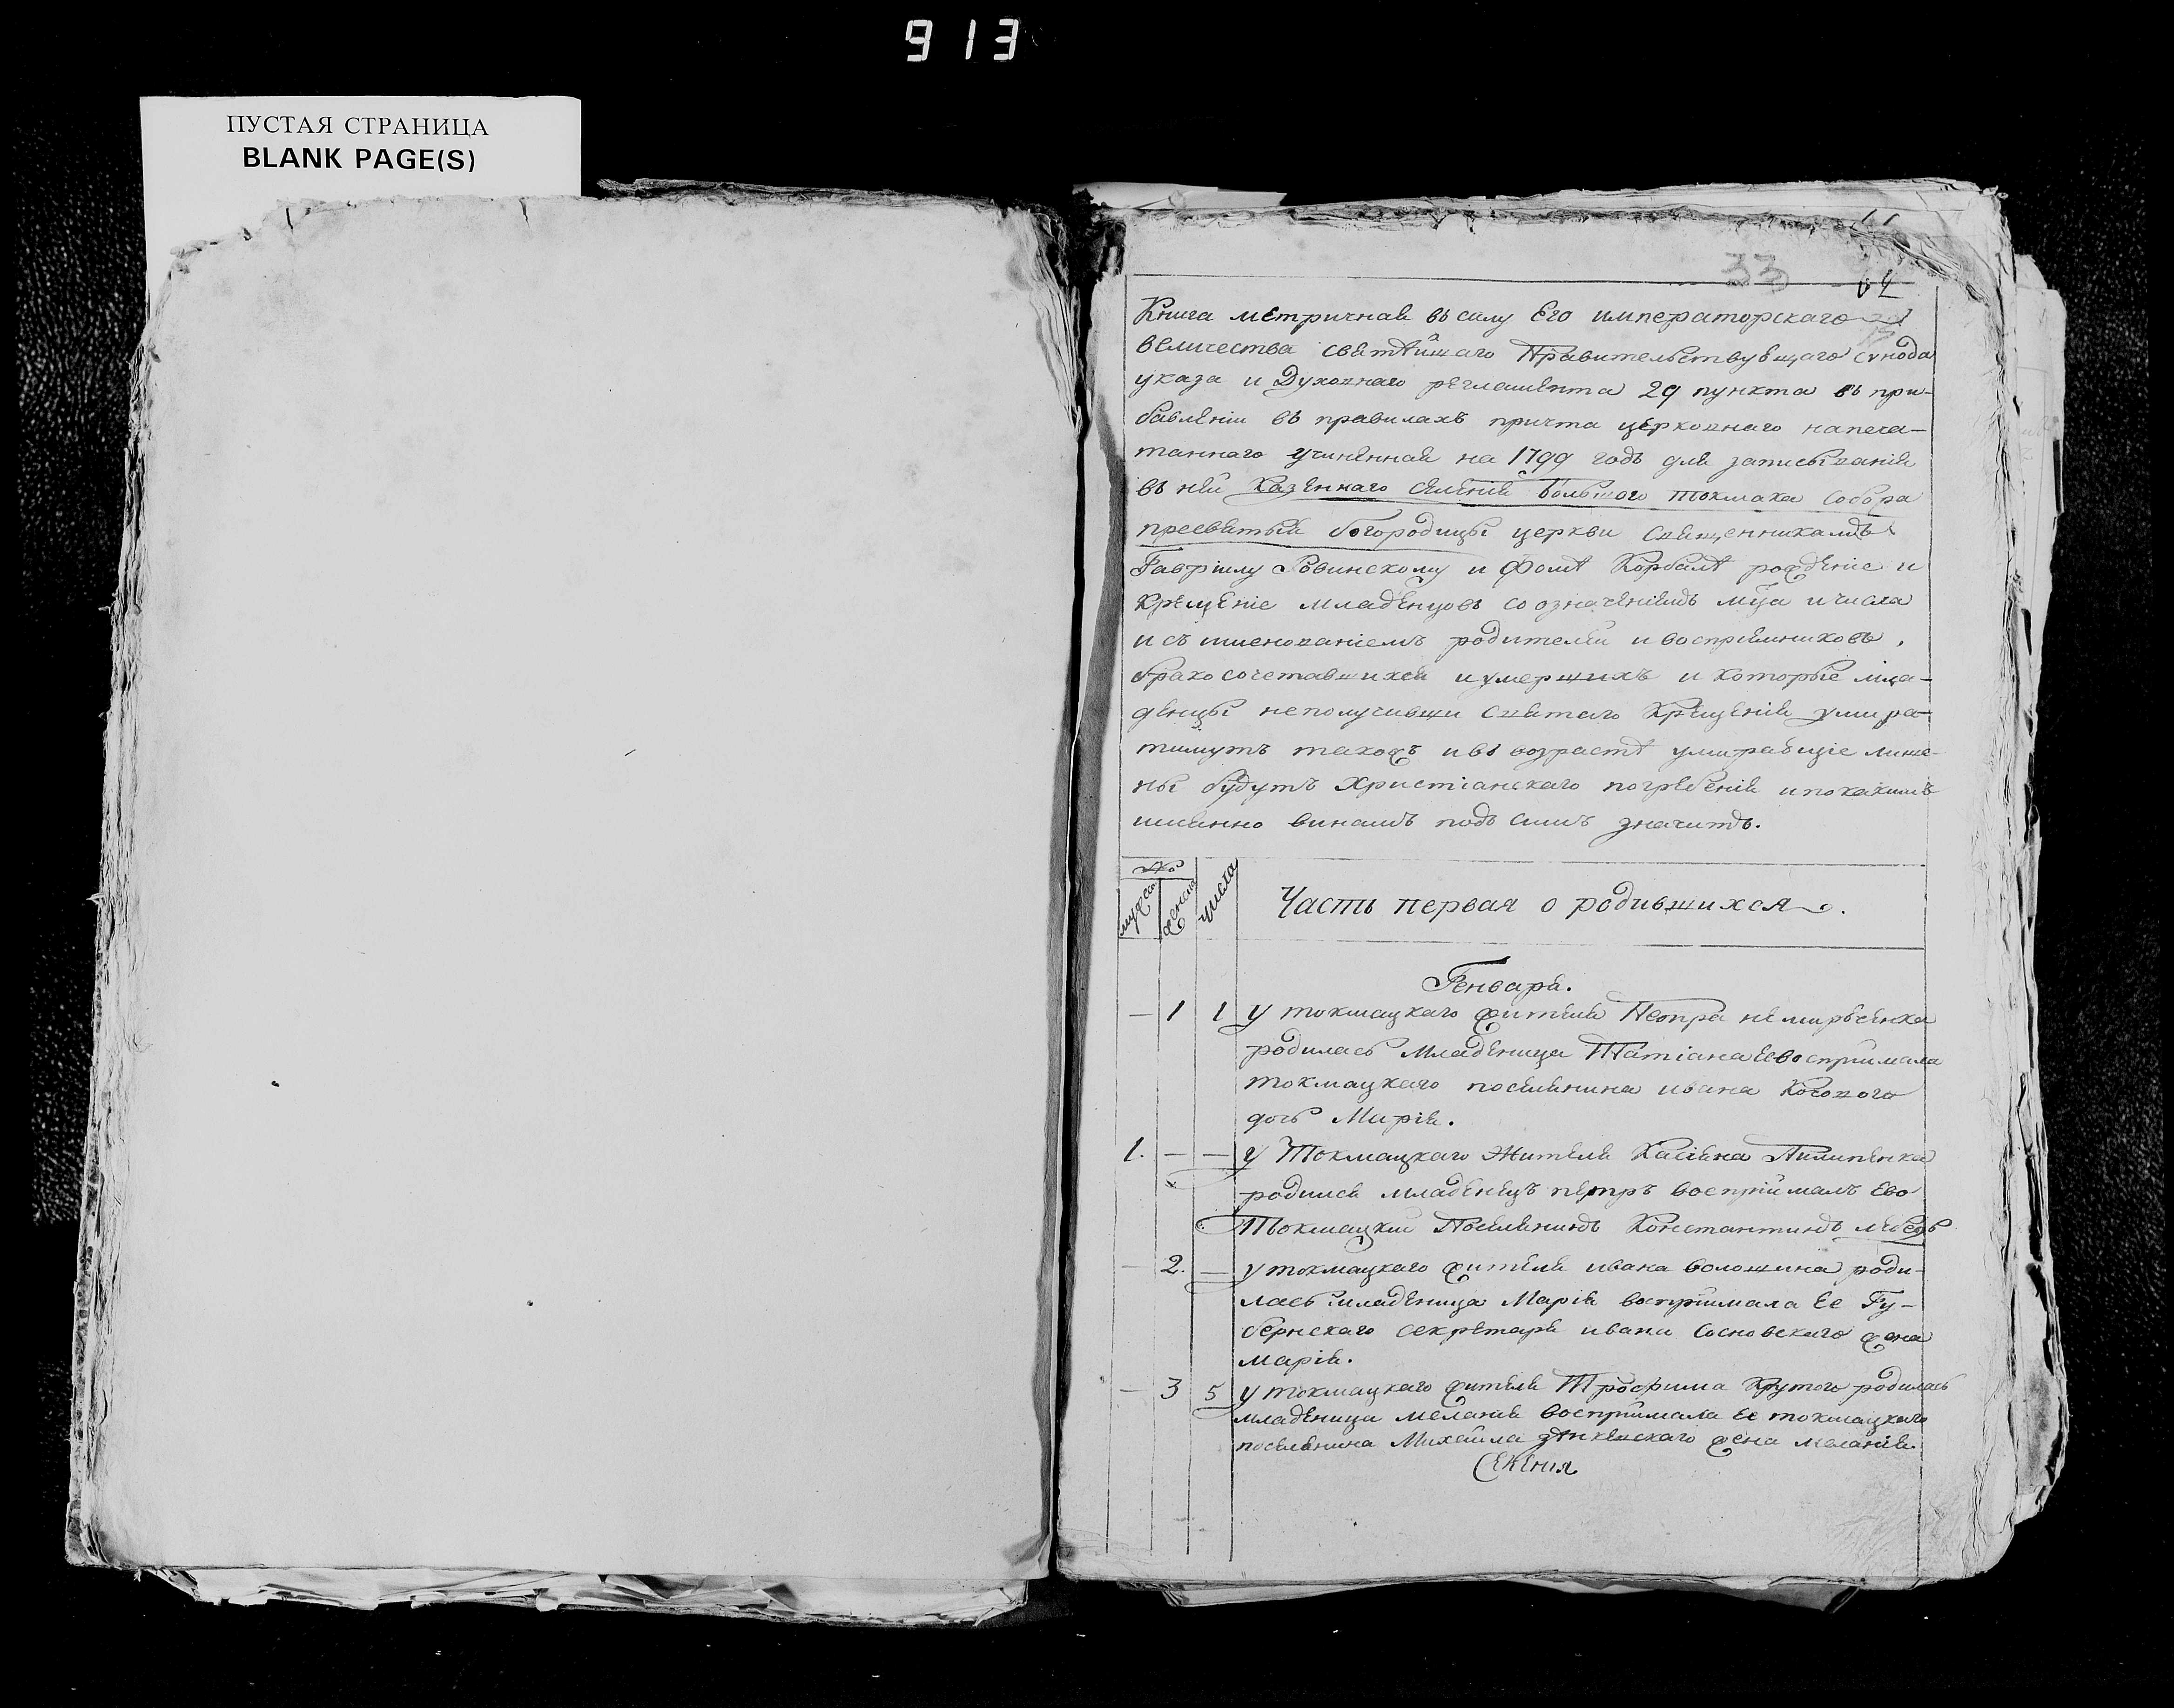 913
ПУСТАЯ СТРАНИЦА
BLANK PAGE(S)
33
Книга метричная въ силу Его императорскаго
величества святѣйшаго Правительствующаго сѵнода
указа и Духовнаго регламента 29 пункта въ при-
бавленіи въ правилахъ причта церковнаго напеча-
таннаго учиненная на 1799 годъ для записыванія
въ ней Казеннаго селенія большого токмака собора
пресвятыя богородицы церкви священникамъ
Гавріилу Ровинскому и Фомѣ Корбалѣ рожденіе и
Крещеніе младенцовъ со означеніемъ мца и числа
и съ имянованіемъ родителей и воспріемниковъ,
бракосочетавшихся и умершихъ и которые мла-
денцы неполучивши святаго Крещенія умира-
тимутъ такожъ и въ возрастѣ умирающіе лише-
ны будутъ Христіанскаго погребенія и по какимъ
имянно винамъ подъ симъ значитъ.
№
мужеска женска числа Часть первая о родившихся.
Генваря.
— 1 1 у токмацкаго жителя Петра
родилась младеница Татіана Ее воспріимала
токмацкаго поселянина ивана
дочь Марія.
1. — — у Токмацкаго Жителя Касіяна Пилипенка
родился младенецъ петръ воспріималъ Ево
Токмацкій Поселянинъ Константинъ
— 2. — у токмацкаго жителя ивана волошина роди-
лась младеница Марія воспріимала Ее Гу-
бернскаго секретаря ивана Сосновскаго жена
марія.
— 3 5 у токмацкаго жителя Трофима Крутого родилась
младеница меланія воспріимала Ее токмацкаго
поселянина Михайла жена меланія.